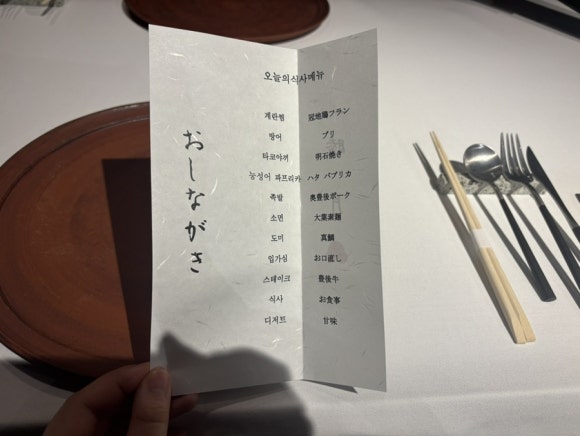 おしながき
오늘의식사메뉴
계란찜 冠地鶏フラン
방어 ブリ
타코야끼 明石焼き
능성어 파프리카 ハタ パプリカ
족발 奥豊後ポーク
소면 大葉素麺
도미 真鯛
입가심 お口直し
ステイク 豊後牛
식사 お食事
디저트 甘味